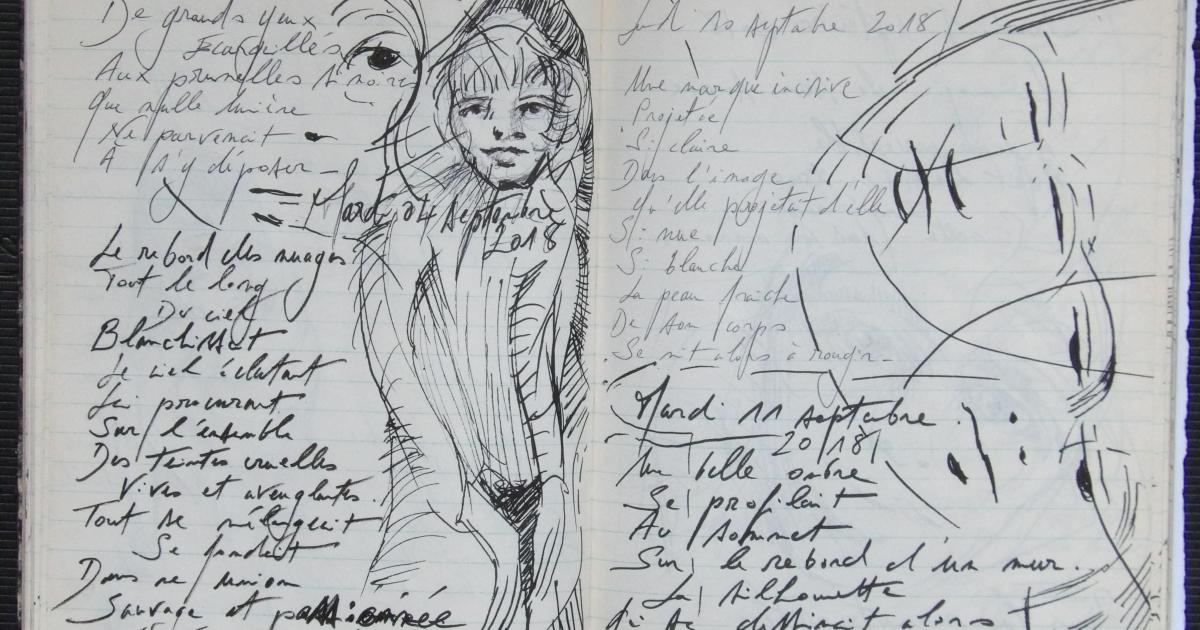 De grands yeux
Ecarquillés
Aux prunelles si noires
Que nulle lumière
Ne parvenait
À s'y déposer
Mardi 04 septembre
2018
Le rebord des nuages
Tout le long
Du ciel
Blanchissait
Le ciel éclatant
Lui procurant
Sur l'ensemble
Des teintes cruelles
Vives et aveuglantes.
Tout se mélangeait
Se fondait
Dans une union
Sauvage et
10 septembre 2018
Une marque incisive
Projetée
Si claire
Dans l'image
Qu'elle projetait d'elle
Si nue
Si blanche
La peau fraîche
De son corps
Se mit alors à rougir
Mardi 11 septembre
2018
Une belle ombre
Se profilait
Au sommet
Sur le rebord d'un mur.
La silhouette
se dessinait alors